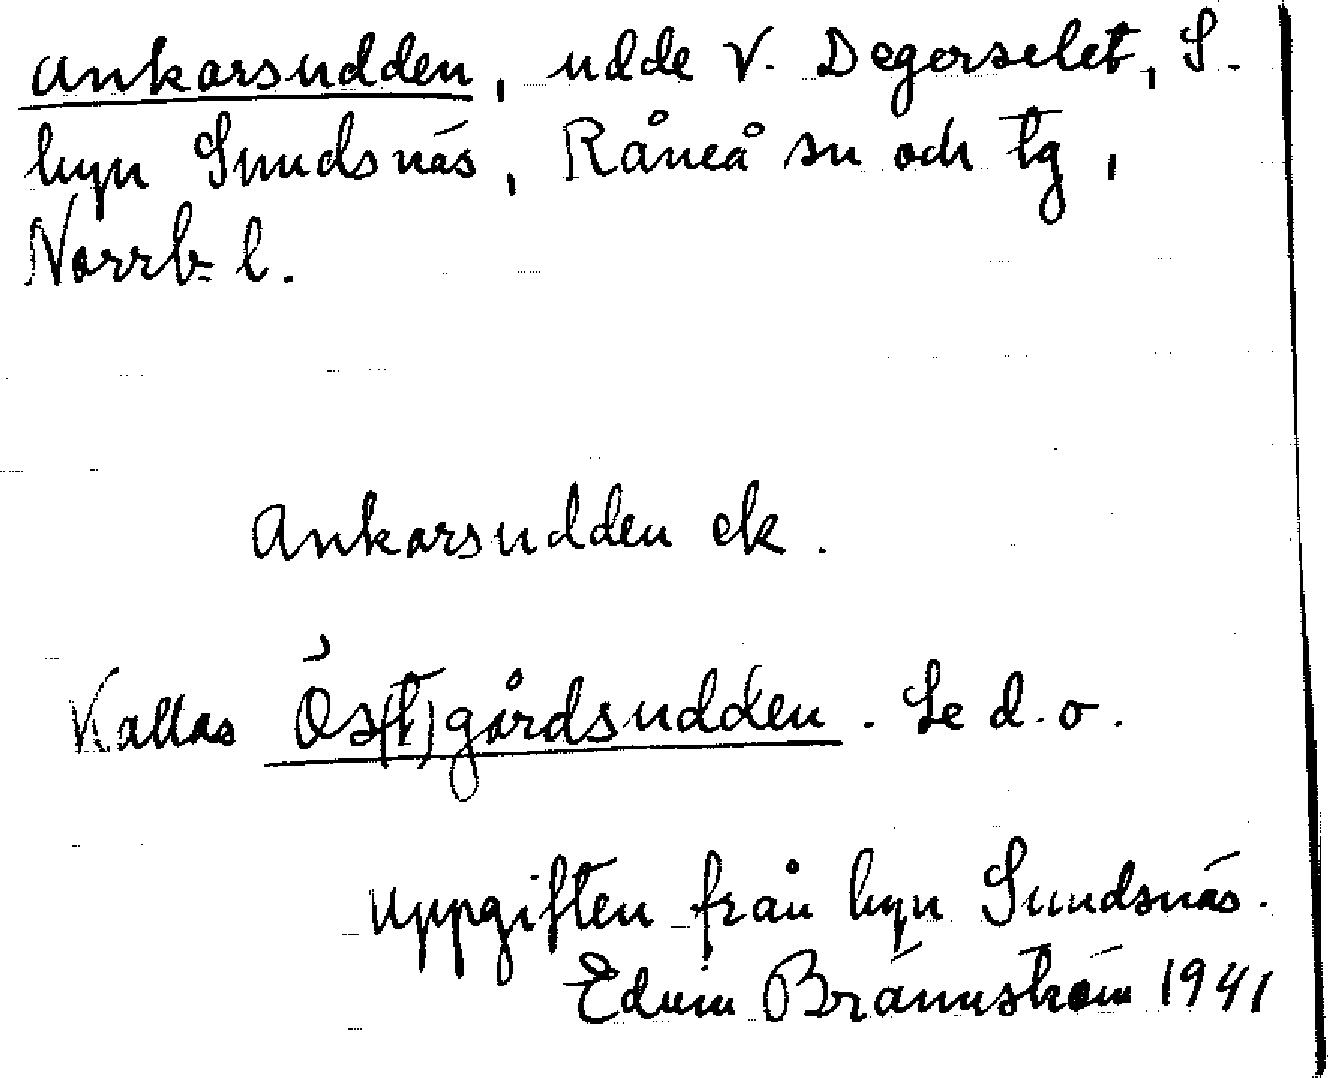 Ankarsudden, udde V. Degerselet, S.
byn Sundsnäs, Råneå sn och tg,
Norrb. l.
Ankarsudden ek.
Kallas Ös(t)gårdsudden. Se d. o.
Uppgiften från byn Sundsnäs.
Edvin Brännström 1941